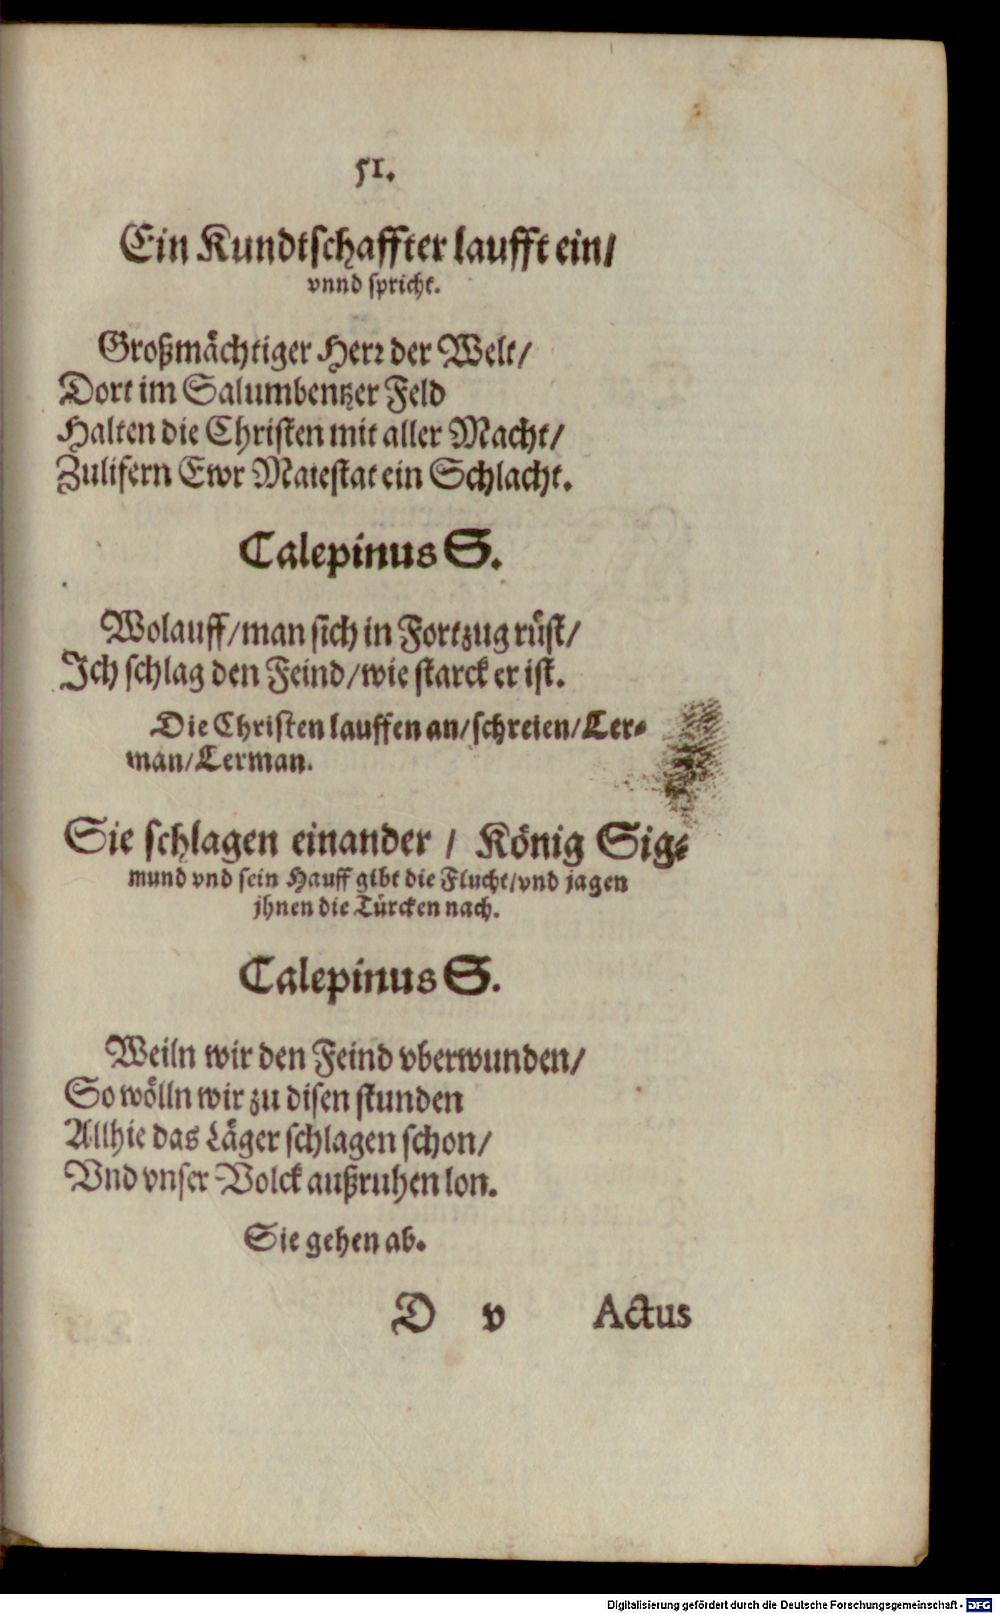 51.
Ein Kundtschaffter laufft ein/
vnnd spricht.
Großmächtiger Herꝛ der Welt/
Dort im Salumbentzer Feld
Halten die Christen mit aller Macht/
Zulifern Ewr Maiestat ein Schlacht.
Calepinus S.
Wolauff/man sich in Fortzug rüst/
Ich schlag den Feind/wie starck er ist.
Die Christen lauffen an/schreien/Ler-
man/Lerman.
Sie schlagen einander / König Sig-
mund vnd sein Hauff gibt die Flucht/vnd jagen
jhnen die Türcken nach.
Calepinus S.
Weiln wir den Feind vberwunden/
So wölln wir zu disen stunden
Allhie das Läger schlagen schon/
Vnd vnser Volck außruhen lon.
Sie gehen ab.
D v Actus
Digitalisierung gefördert durch die Deutsche Forschungsgemeinschaft - DFG